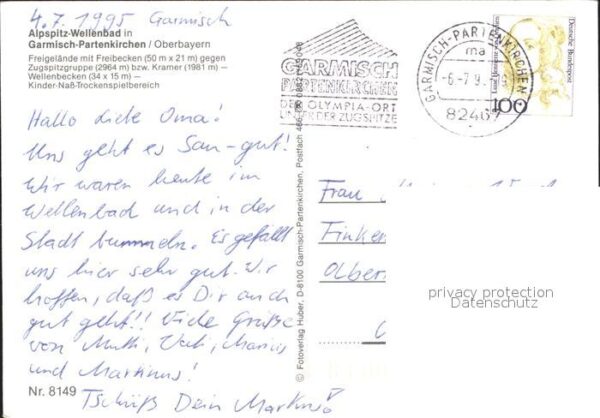 4.7.1995 Garmisch
Alpspitz-Wellenbad in
Garmisch-Partenkirchen / Oberbayern
Freigelände mit Freibecken (50 m x 21 m) gegen
Zugspitzgruppe (2964 m) bzw. Kramer (1981 m) –
Wellenbecken (34 x 15 m) –
Kinder-Naß-Trockenspielbereich
Hallo liebe Oma!
Uns geht es Sau-gut!
Wir waren heute im
Wellenbad und in der
Stadt bummeln. Es gefällt
uns hier sehr gut. Wir
hoffen, daß es Dir auch
gut geht!! Viele Grüße
von Mutti, Vati, Marius
und Martinus!
Tschüß Dein Martinus
Nr. 8149
© Fotoverlag Huber, D-8100 Garmisch-Partenkirchen, Postfach
GARMISCH
PARTENKIRCHEN
DER OLYMPIA-ORT
UNTER DER ZUGSPITZE
GARMISCH-PARTENKIRCHEN
ma
82467
Deutsche Bundespost
100
Frau
privacy protection
Datenschutz